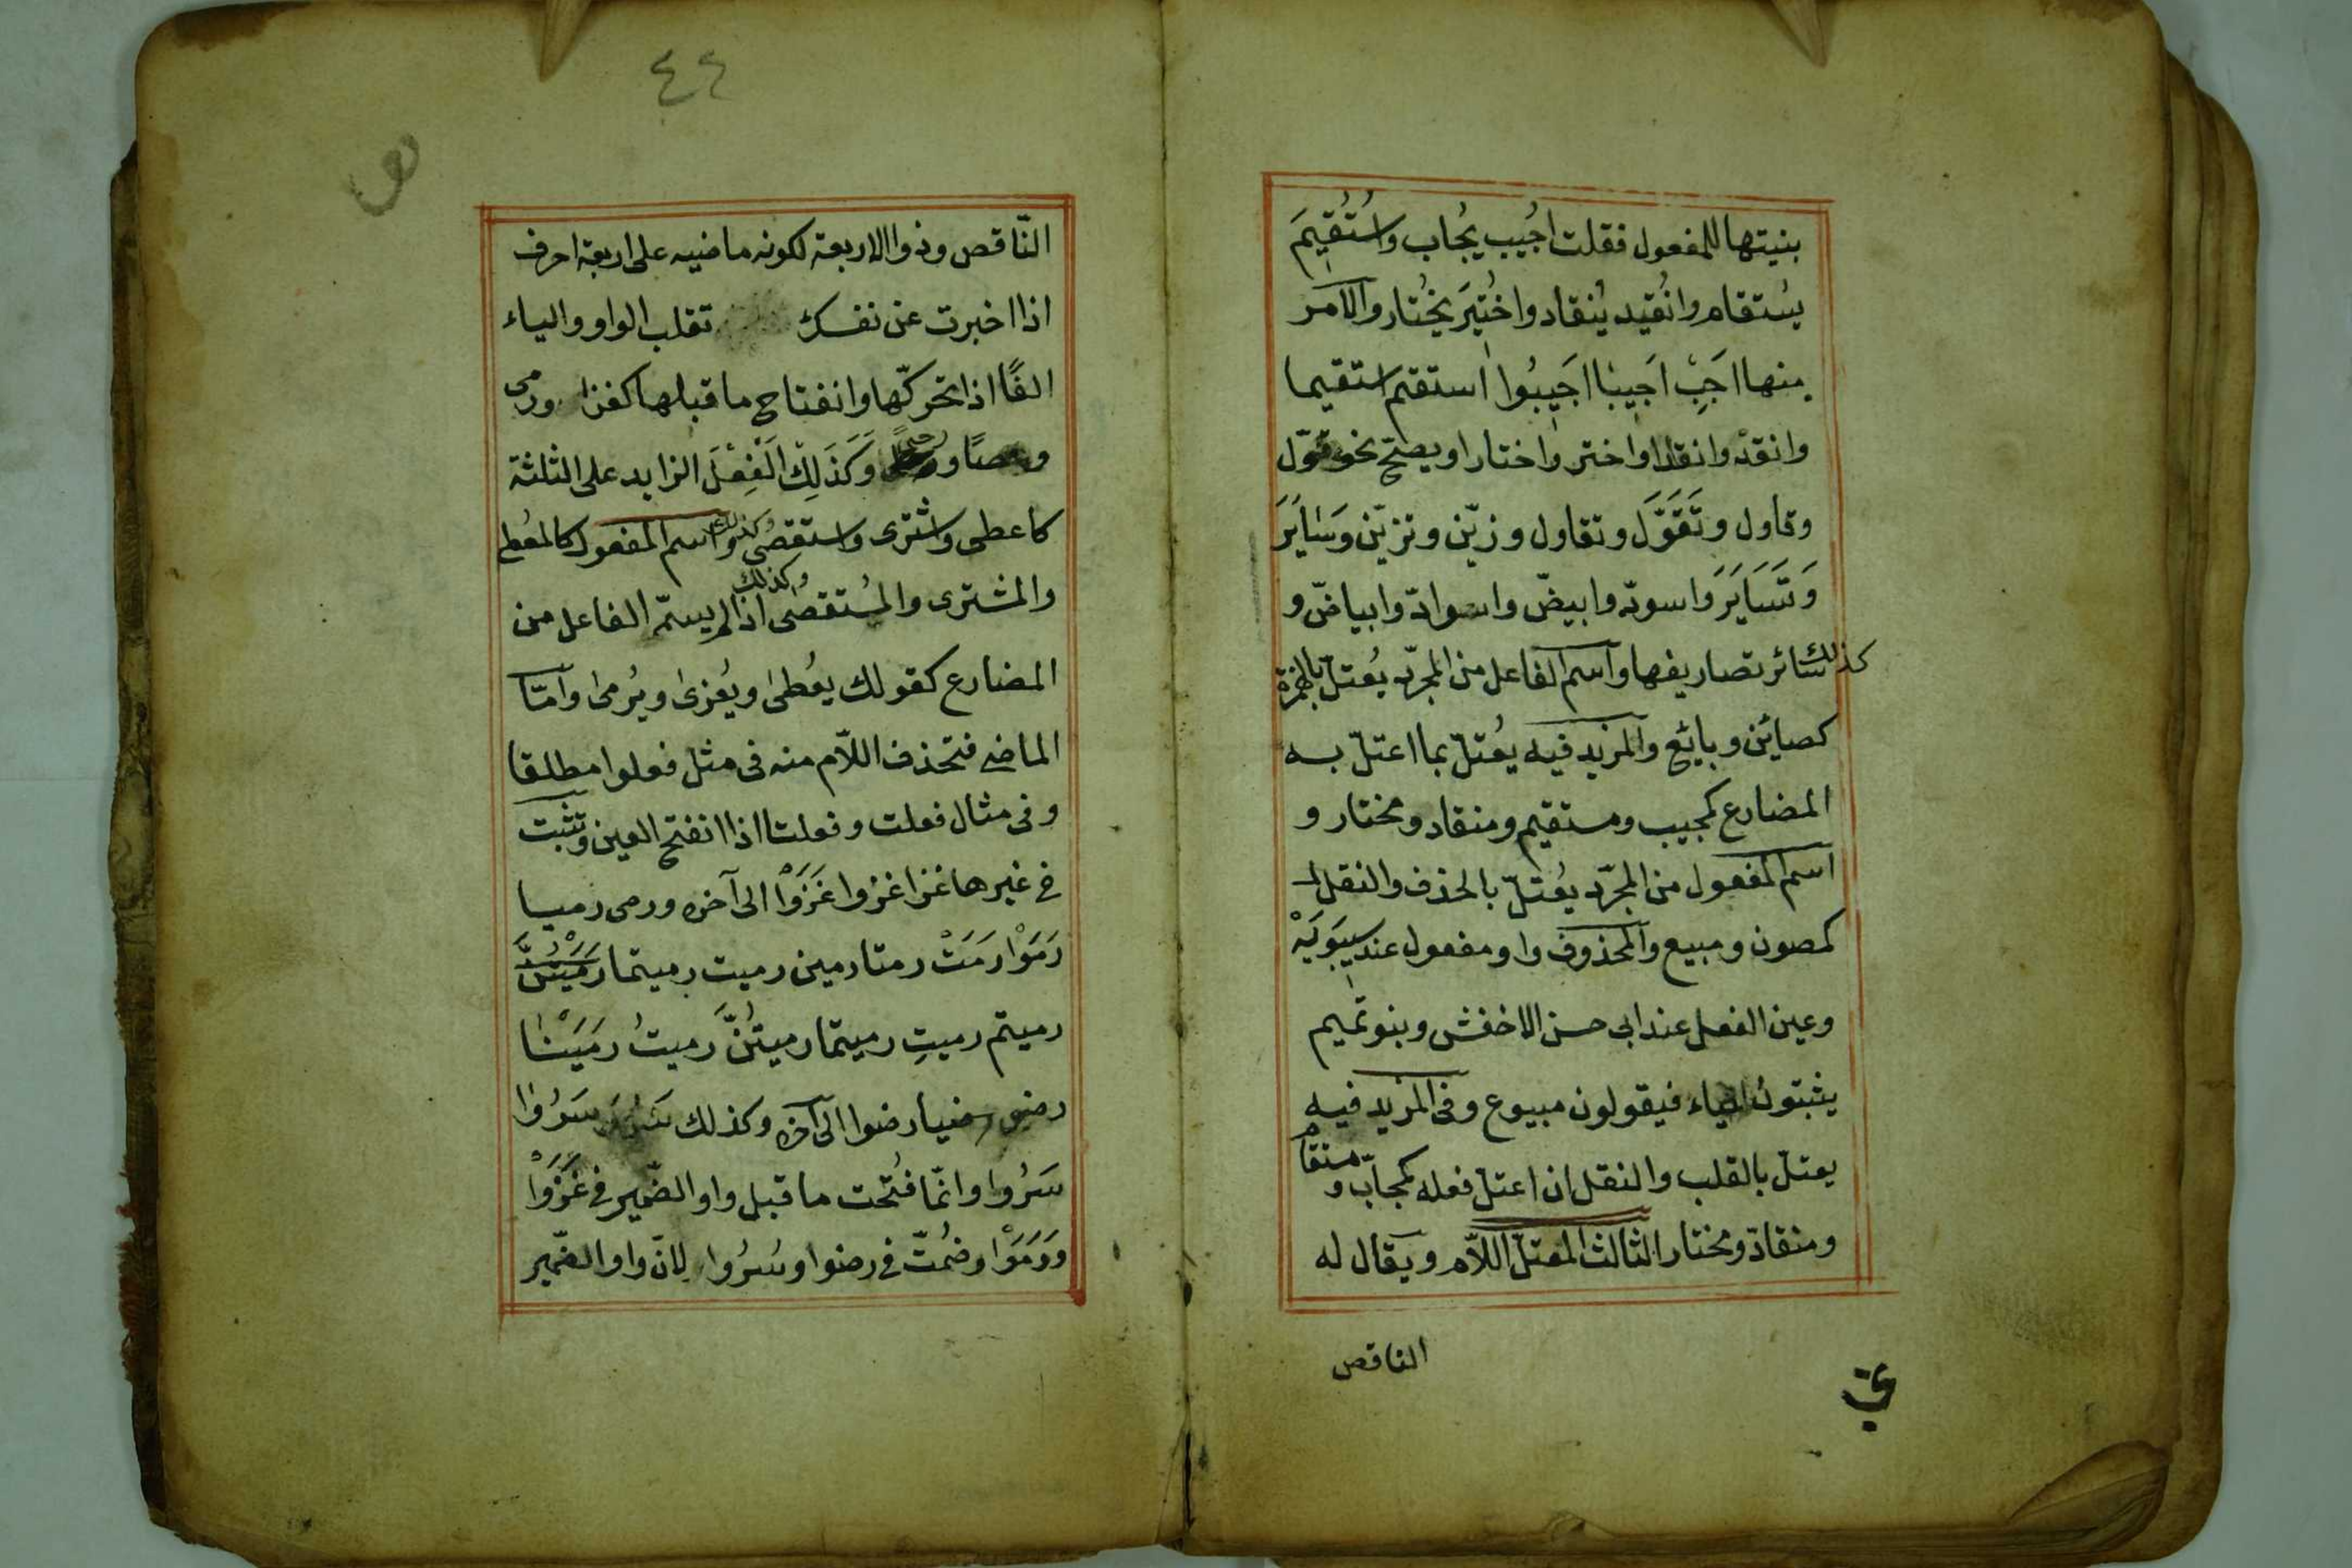 بنيتها للمفعول فقلت اُجيب يُجاب واستُقيمَ
يستقام وانُقيد يُنقاد واخُتيرَ يخُتار والامر
منها اَجَبِْ اَجيبٰا اجَيبُوا استقم استقيما
وانقدْ وانقادا واختر واختارا ويصحّ نحو قوّل
وقاول وتَقَوَّلَ وتقاول وزيّن وتزيّن وسَٰايَرَ
وَتَسَايَرَ واسودّ وابيضّ واسوادّ وابياضّ و
كذلك سائر تصاريفها واسم الفاعل من المجرّد يُعتلّ بالهمزة
كصائن وبائع والمزيد فيه يعُتلّ بما اعتلّ به
المضارع كمجيب ومستقيم ومنقاد ومختار و
اسم المفعول من المجرّد يعُتلّ بالحذف والنقل
كمصون ومبيع والمحذوف واو مفعول عند سيبَوَيَهْ
وعين الفعل عند ابى حسن الاخفش وبنو تميم
يثبتون الياء فيقولون مبيوع وفى المزيد فيه
يعتلّ بالقلب والنقل ان اعتلّ فعله كمجاب و مستقام
ومنقاد ومختار الثالث المعتلّ اللاّم ويقال له
الناقص
٤٤
النّاقص وذو الاربعة لكونه ماضيه على اربعة احرف
اذا اخبرت عن نفسك تقلب الواو والياء
الفًا اذا تحركّها وانفتاح ما قبلها كغزا ورمى
وعصًا و وَكَذَلِكَ الَفِعْلَ الزايد على الثلثة
كاعطى واشترى واستقصى وكذلك اسم المفعول كالمعُطى
والمشترى والمُستقصٰى وكذلك اذا لم يسمّ الفاعل من
المضارع كقولك يعُطىٰ ويُغزىٰ ويُرمىٰ وامّا
الماضى فتحذف اللاّم منه فى مثل فعلوا مطلقا
وفى مثال فعلت وفعلتا اذا انفتح العين وتثبت
فى غيرها غزا غزوا غَزَوْا الى آخره ورمى رميا
رَمَوْا رَمَتْ رمتا رمين رميت رميتما
رميتم رميتِ رميتما رميتُنَّ رميتُ رمَيَنْا
رضى رضيا رضوا الى آخره وكذلك سَرُوَ سَرُوٰا
سَرُوا وانمّا فتُحت ما قبل واو الضّمير فى غَزَوْا
ورَمَوْا وضُمتّ فى رضوا وسَرُوا لانّ واو الضّمير